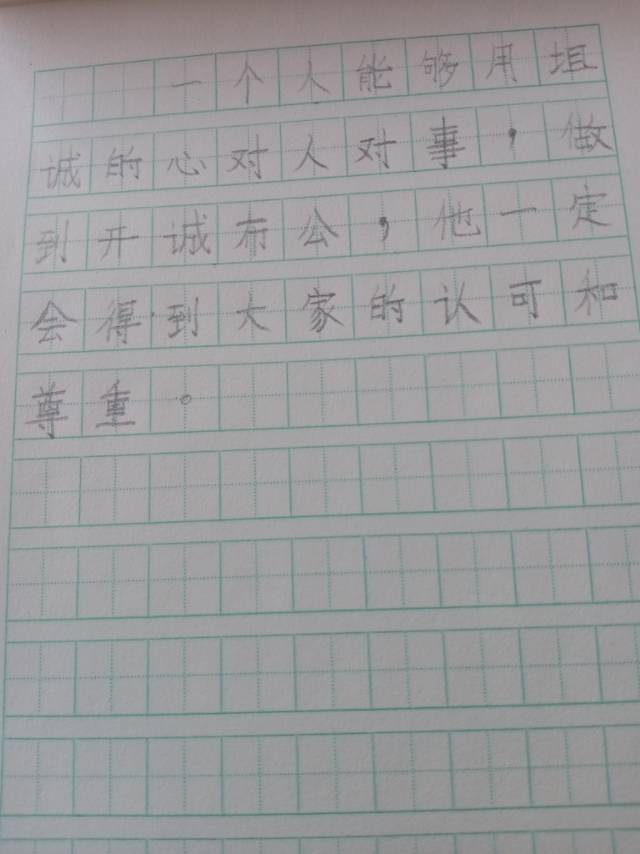 一个人能够用坦
诚的心对人对事，做
到开诚布公，他一定
会得到大家的认可和
尊重。